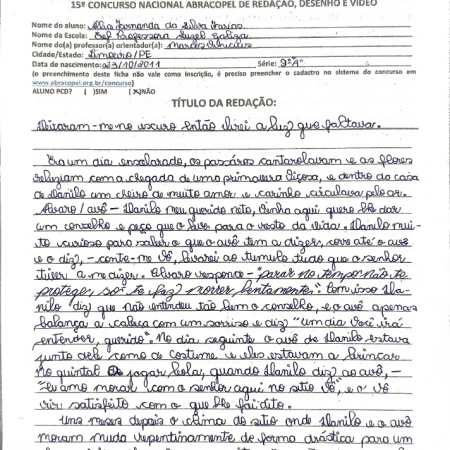 15º CONCURSO NACIONAL ABRACOPEL DE REDAÇÃO, DESENHO E VÍDEO
Nome do aluno: Fernanda da Silva
Nome da Escola: Professora
Nome do(a) professor(a) orientador(a): Marcos
Cidade/Estado: Limoeiro/PE
Data de nascimento: 23/10/2011 Série: 9º "A"
(o preenchimento deste ficha não vale como inscrição, é preciso preencher o cadastro no sistema do concurso em
www.abracopel.org.br/concurso)
ALUNO PCD? ( )SIM (X)NÃO
TÍTULO DA REDAÇÃO:
-me no escuro então virei a luz que faltava.
Era um dia ensolarado, os pássaros cantarolavam e as flores
reluziam com a chegada de uma primavera viçosa, e dentro da casa
de Danilo um cheiro de muito amor e carinho circulava pelo ar.
Álvaro/avô - Danilo meu querido neto, venha aqui quero lhe dar
um conselho e peço que o leve para o resto da vida. Danilo mui-
to curioso para saber o que o avô tem a dizer, corre até o avô
e o diz, - conte-me vô, levarei ao túmulo tudo que o senhor
tiver a me dizer. Álvaro responde - "parar no tempo não te
protege, só te faz morrer lentamente." Com isso Da-
nilo diz que não entendeu tão bem o conselho, e o avô apenas
balança a cabeça com um sorriso e diz "um dia você irá
entender, querido". No dia seguinte o avô de Danilo estava
junto dele como de costume e eles estavam a brincar
no quintal de jogar bola, quando Danilo diz ao avô, -
"eu amo morar com o senhor aqui no sítio vô", e o vô
rir satisfeito com o que lhe foi dito.
Uns meses depois o clima do sítio onde Danilo e o avô
moram muda repentinamente de forma drástica para um